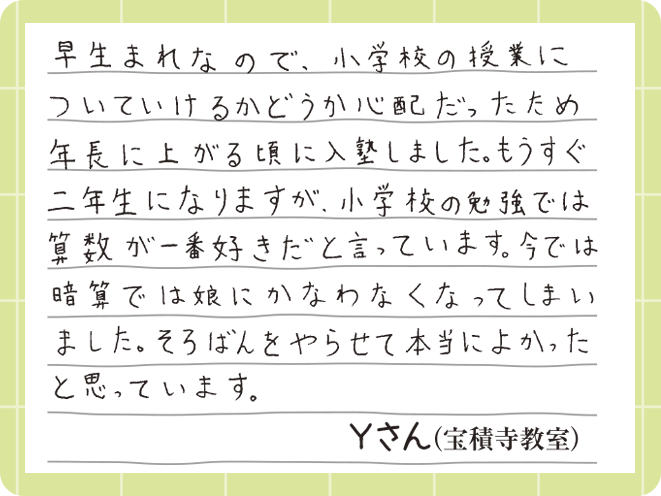 早生まれなので、小学校の授業に
ついていけるかどうか心配だったため
年長に上がる頃に入塾しました。もうすぐ
二年生になりますが、小学校の勉強では
算数が一番好きだと言っています。今では
暗算では娘にかなわなくなってしまい
ました。そろばんをやらせて本当によかった
と思っています。
Yさん(宝積寺教室)